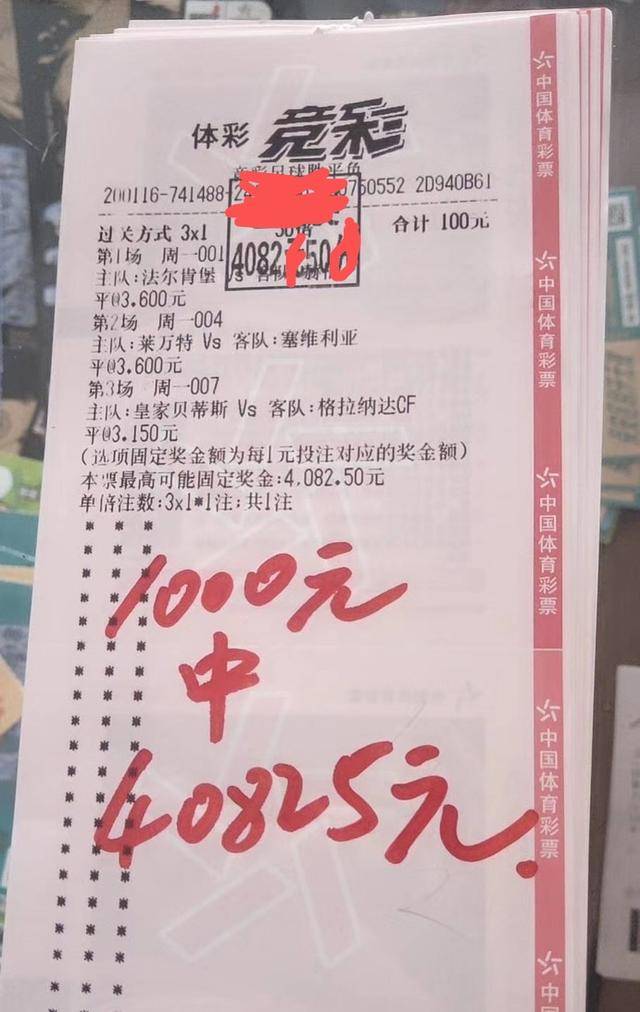 体彩 竞彩
竞彩足球胜平负
200116-741488- 750552 2D940B61
过关方式 3x1 50倍 合计 100元
第1场 周一001
主队:法尔肯堡 Vs 客队:
平@3.600元
4082.50
10
第2场 周一004
主队:莱万特 Vs 客队:塞维利亚
平@3.600元
第3场 周一007
主队:皇家贝蒂斯 Vs 客队:格拉纳达CF
平@3.150元
(选项固定奖金额为每1元投注对应的奖金额)
本票最高可能固定奖金:4,082.50元
单倍注数:3x1*1注;共1注
1000元
中
40825元.
中国体育彩票
中国体育彩票
中国体育彩票
中国体育彩票
中